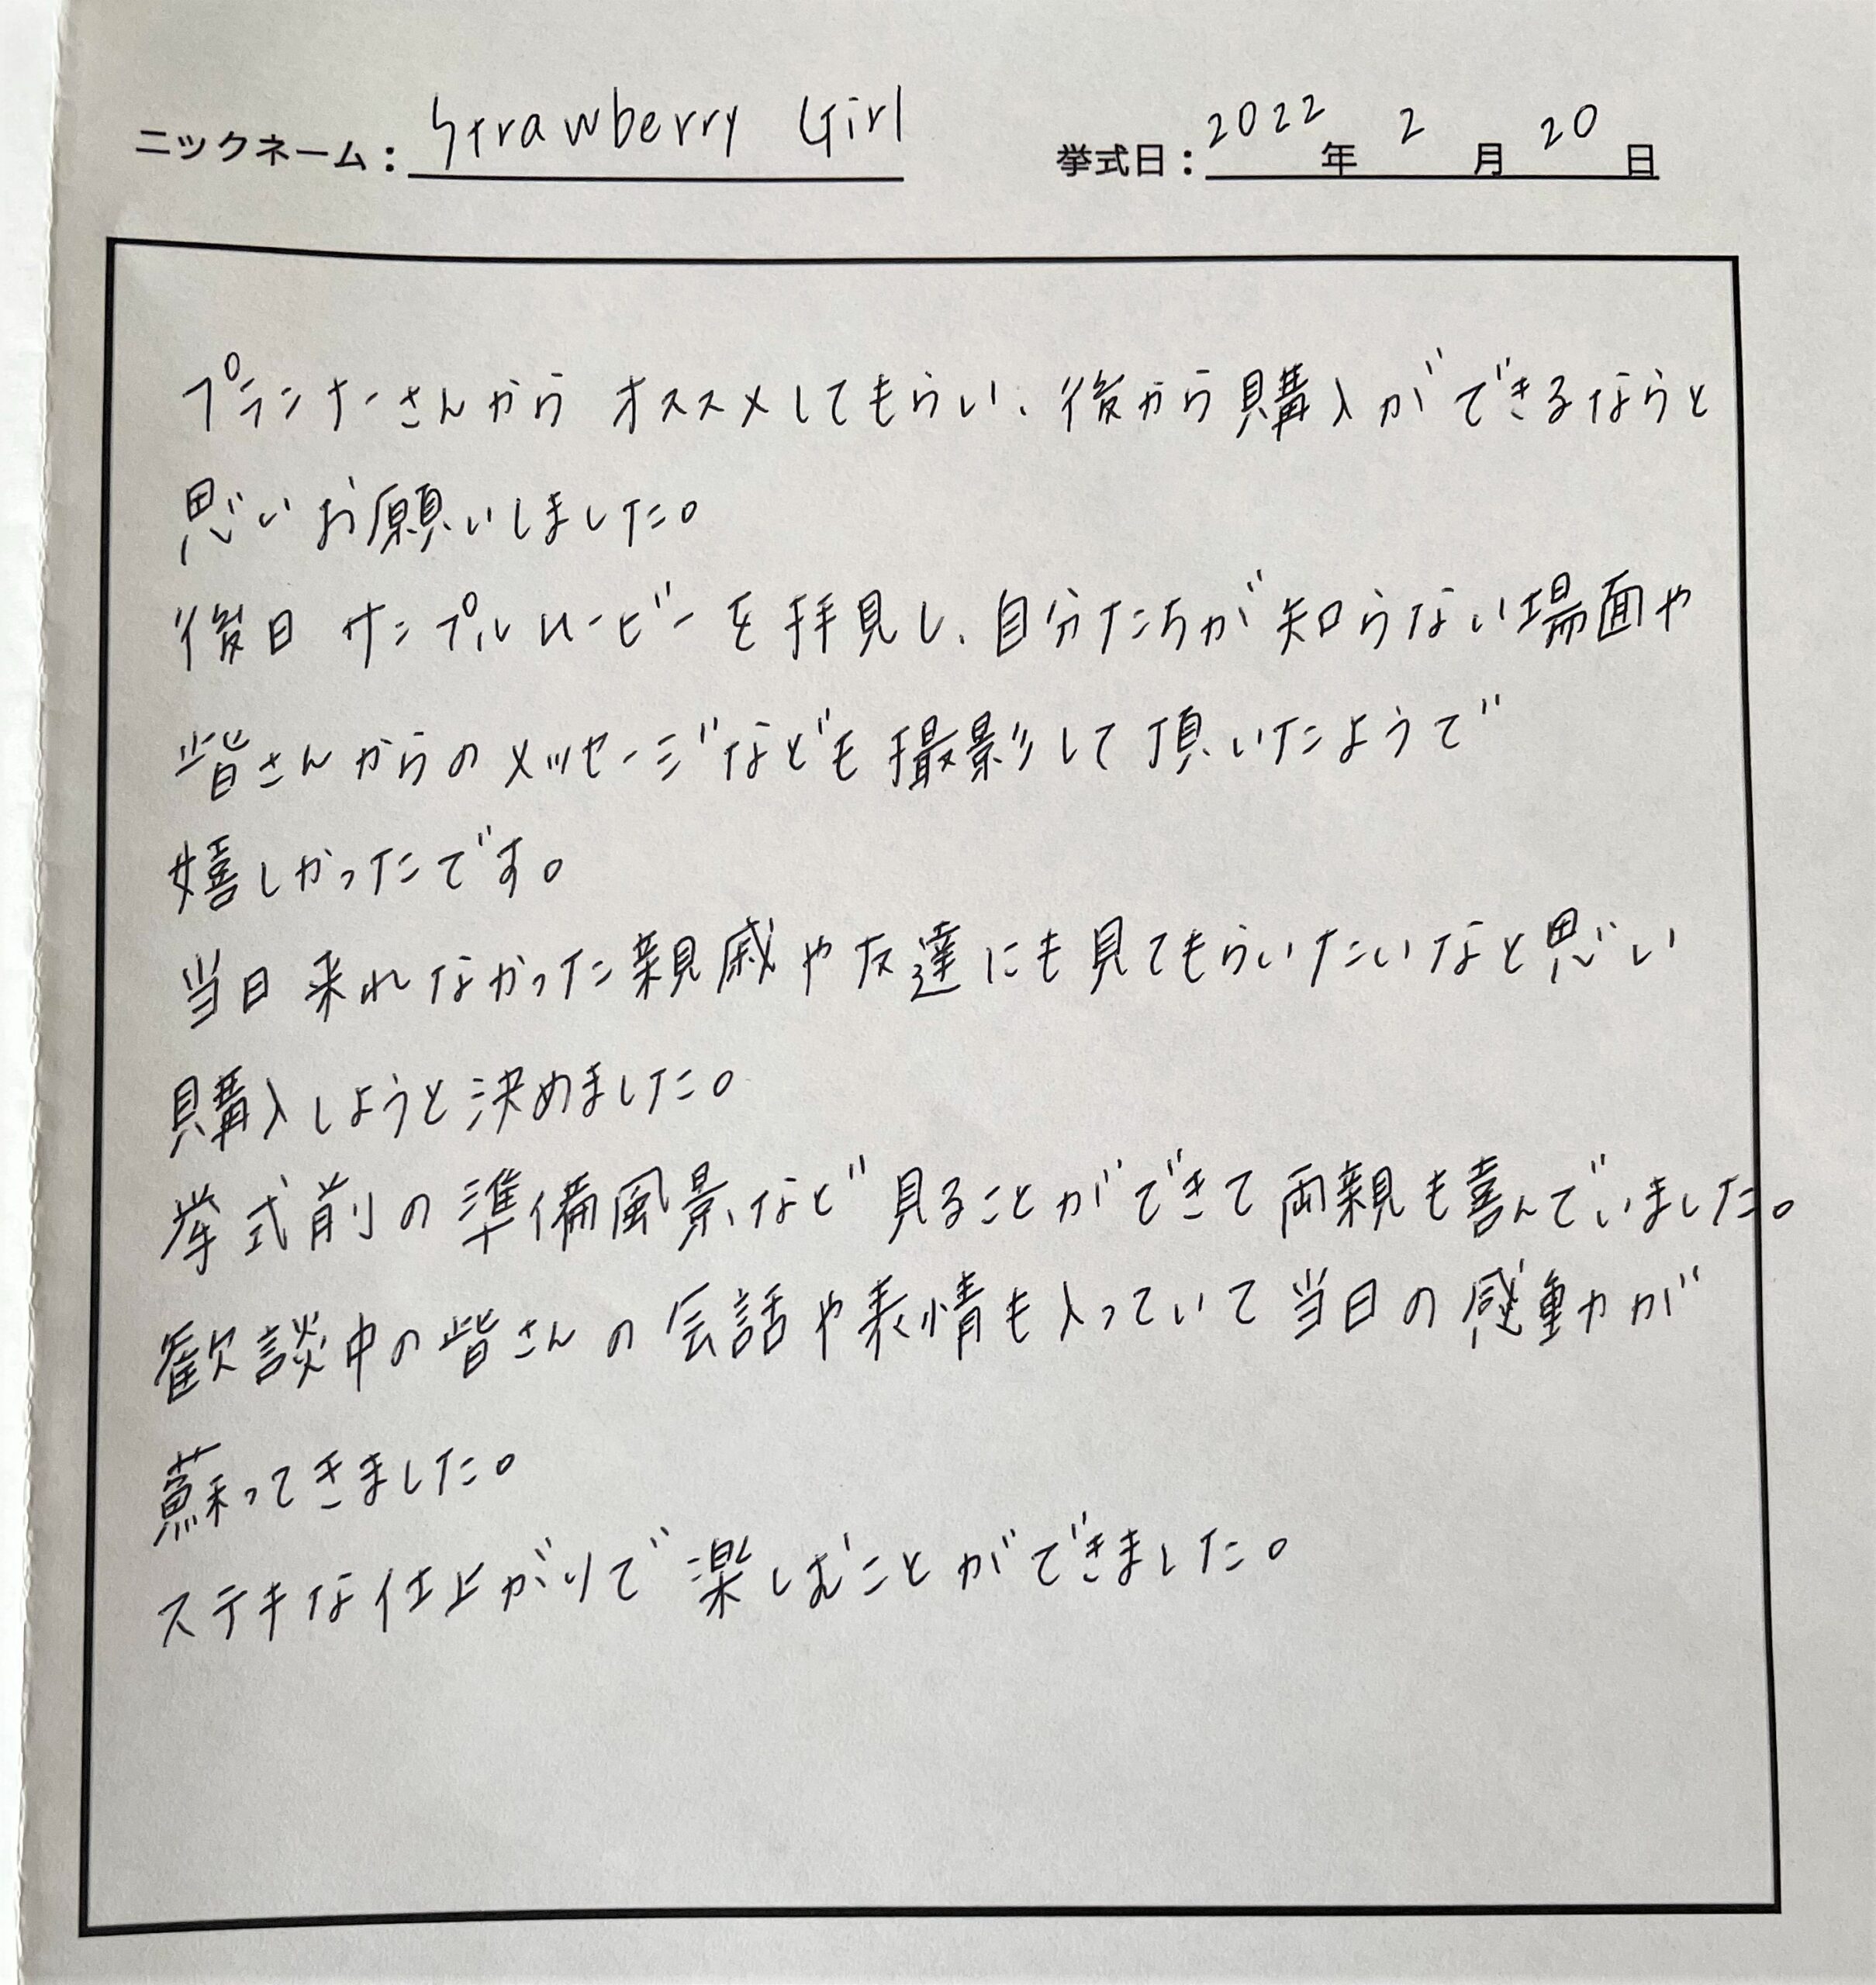 ニックネーム：Strawberry Girl 挙式日：2022年 2月 20日
プランナーさんから オススメしてもらい、後から購入ができるならと
思いお願いしました。
後日 サンプルムービーを拝見し、自分たちが知らない場面や
皆さんからのメッセージなども撮影して頂いたようで
嬉しかったです。
当日来れなかった親戚や友達にも見てもらいたいなと思い
購入しようと決めました。
挙式前の準備風景など見ることができて両親も喜んでいました。
歓談中の皆さんの会話や表情も入っていて当日の感動が
蘇ってきました。
ステキな仕上がりで楽しむことができました。